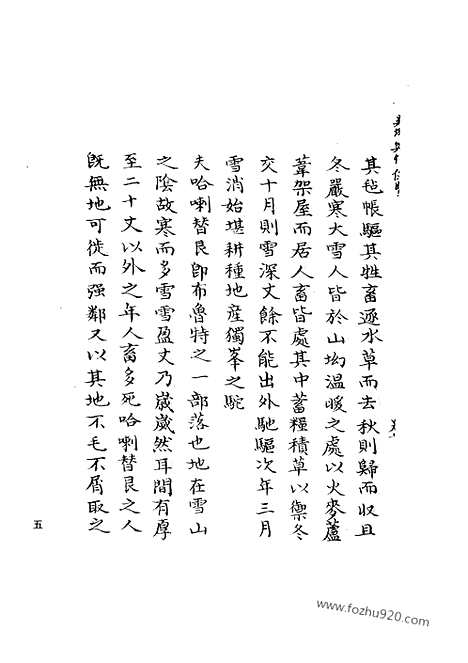 其毡帳驅其牲畜逐水草而去秋則歸而收且
冬嚴寒大雪人皆於山坳温暖之處以火麥蘆
葦架屋而居人畜皆處其中蓄糧積草以禦冬
交十月則雪深丈餘不能出外馳驅次年三月
雪消始堪耕種地産獨峯之駝
夫哈喇替艮卽布魯特之一部落也地在雪山
之陰故寒而多雪雪盈丈乃嵗嵗然耳間有厚
至二十丈以外之年人畜多死哈喇替艮之人
旣無地可徙而强鄰又以其地不毛不屑取之
五
www.fozhu920.com